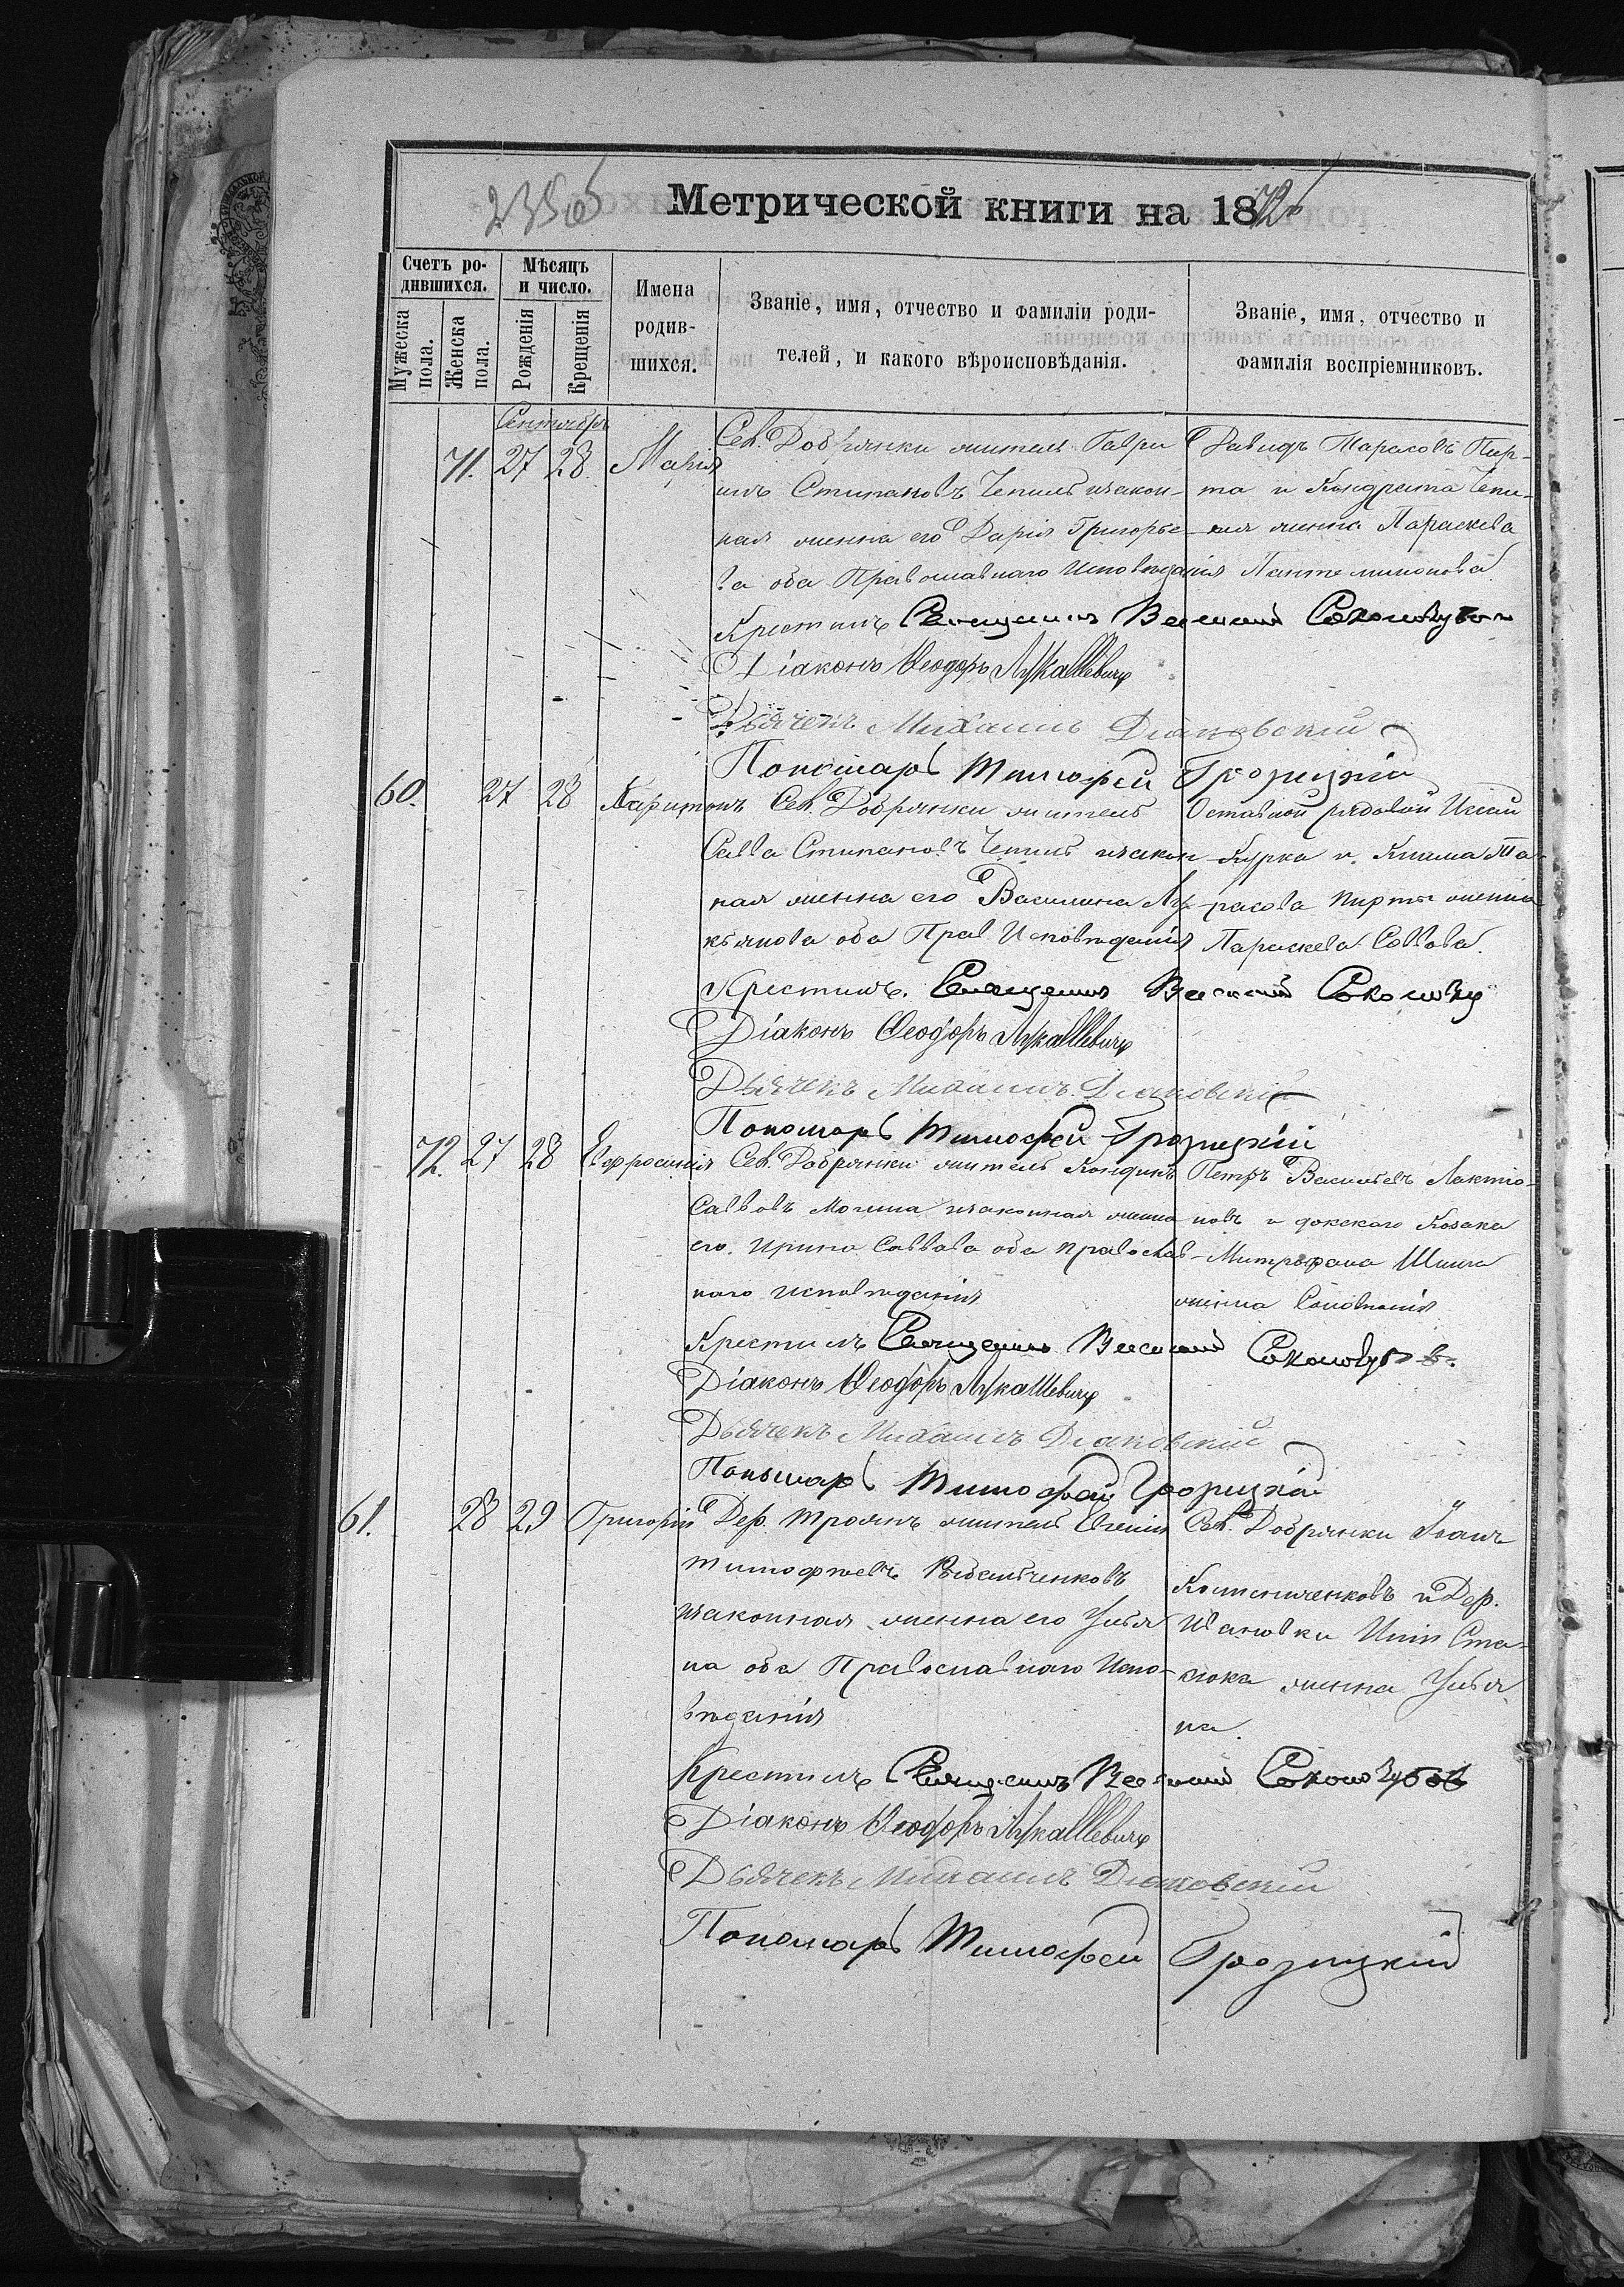 Метрической книги на 1872
Счетъ родившихся.
Мѣсяцъ и число.
Мужеска пола.
Женска пола.
Рожденія
Крещенія
Имена родившихся.
Званіе, имя, отчество и фамиліи родителей, и какого вѣроисповѣданія.
Званіе, имя, отчество и фамилія воспріемниковъ.
Сентябрь
71. 27 28 Марія
Сел. Добрянки житель Гаври
илъ Стипановъ Чепиль изакон-
ная жинна его Дарія Григорье-
ва оба Православнаго Исповѣданія
Давидъ Тарасовъ Пир-
та и Кондрата Чепи-
ля жинна Параскева
Пантелимонова
Крестилъ Священикъ Василий
Діаконъ Ѳеодоръ Лукашевичъ
Дьячекъ Михаилъ Діаковскій
Пономарь Тимофей Грозицкій
60. 27 28 Харитонъ
Сел. Добрянки житель
Савва Стипановъ Чепиль изакон
ная жинна его Василина Лу-
кьянова оба Прав Исповѣданія
Оставной рядовой
Курка и Клима Та-
расова Пирты жинна
Параскева Саввова.
Крестилъ. Священикъ Василий
Діаконъ Ѳеодоръ Лукашевичъ
Дьячекъ Михаилъ Діаковскій
Пономарь Тимофей Грозицкій
72. 27 28 Евфросинія
Сел. Добрянки житель
Саввовъ изаконная жинна
его Ирина Саввова оба православ-
наго исповѣданія
Петръ Васильевъ Лактіо-
новъ и Козака
Митрофана
жинна
Крестилъ Священикъ Василий
Діаконъ Ѳеодоръ Лукашевичъ
Дьячекъ Михаилъ Діаковскій
Пономарь Тимофей Грозицкій
61. 28 29 Григорій
Дер. житель
Тимофѣевъ
изаконная жинна его Улья
на оба Православнаго Испо-
вѣданія
Сел. Добрянки Іоанъ
и Дер.
Ивановки
жинна Улья
на.
Крестилъ Священикъ Василий
Діаконъ Ѳеодоръ Лукашевичъ
Дьячекъ Михаилъ Діаковскій
Пономарь Тимофей Грозицкій